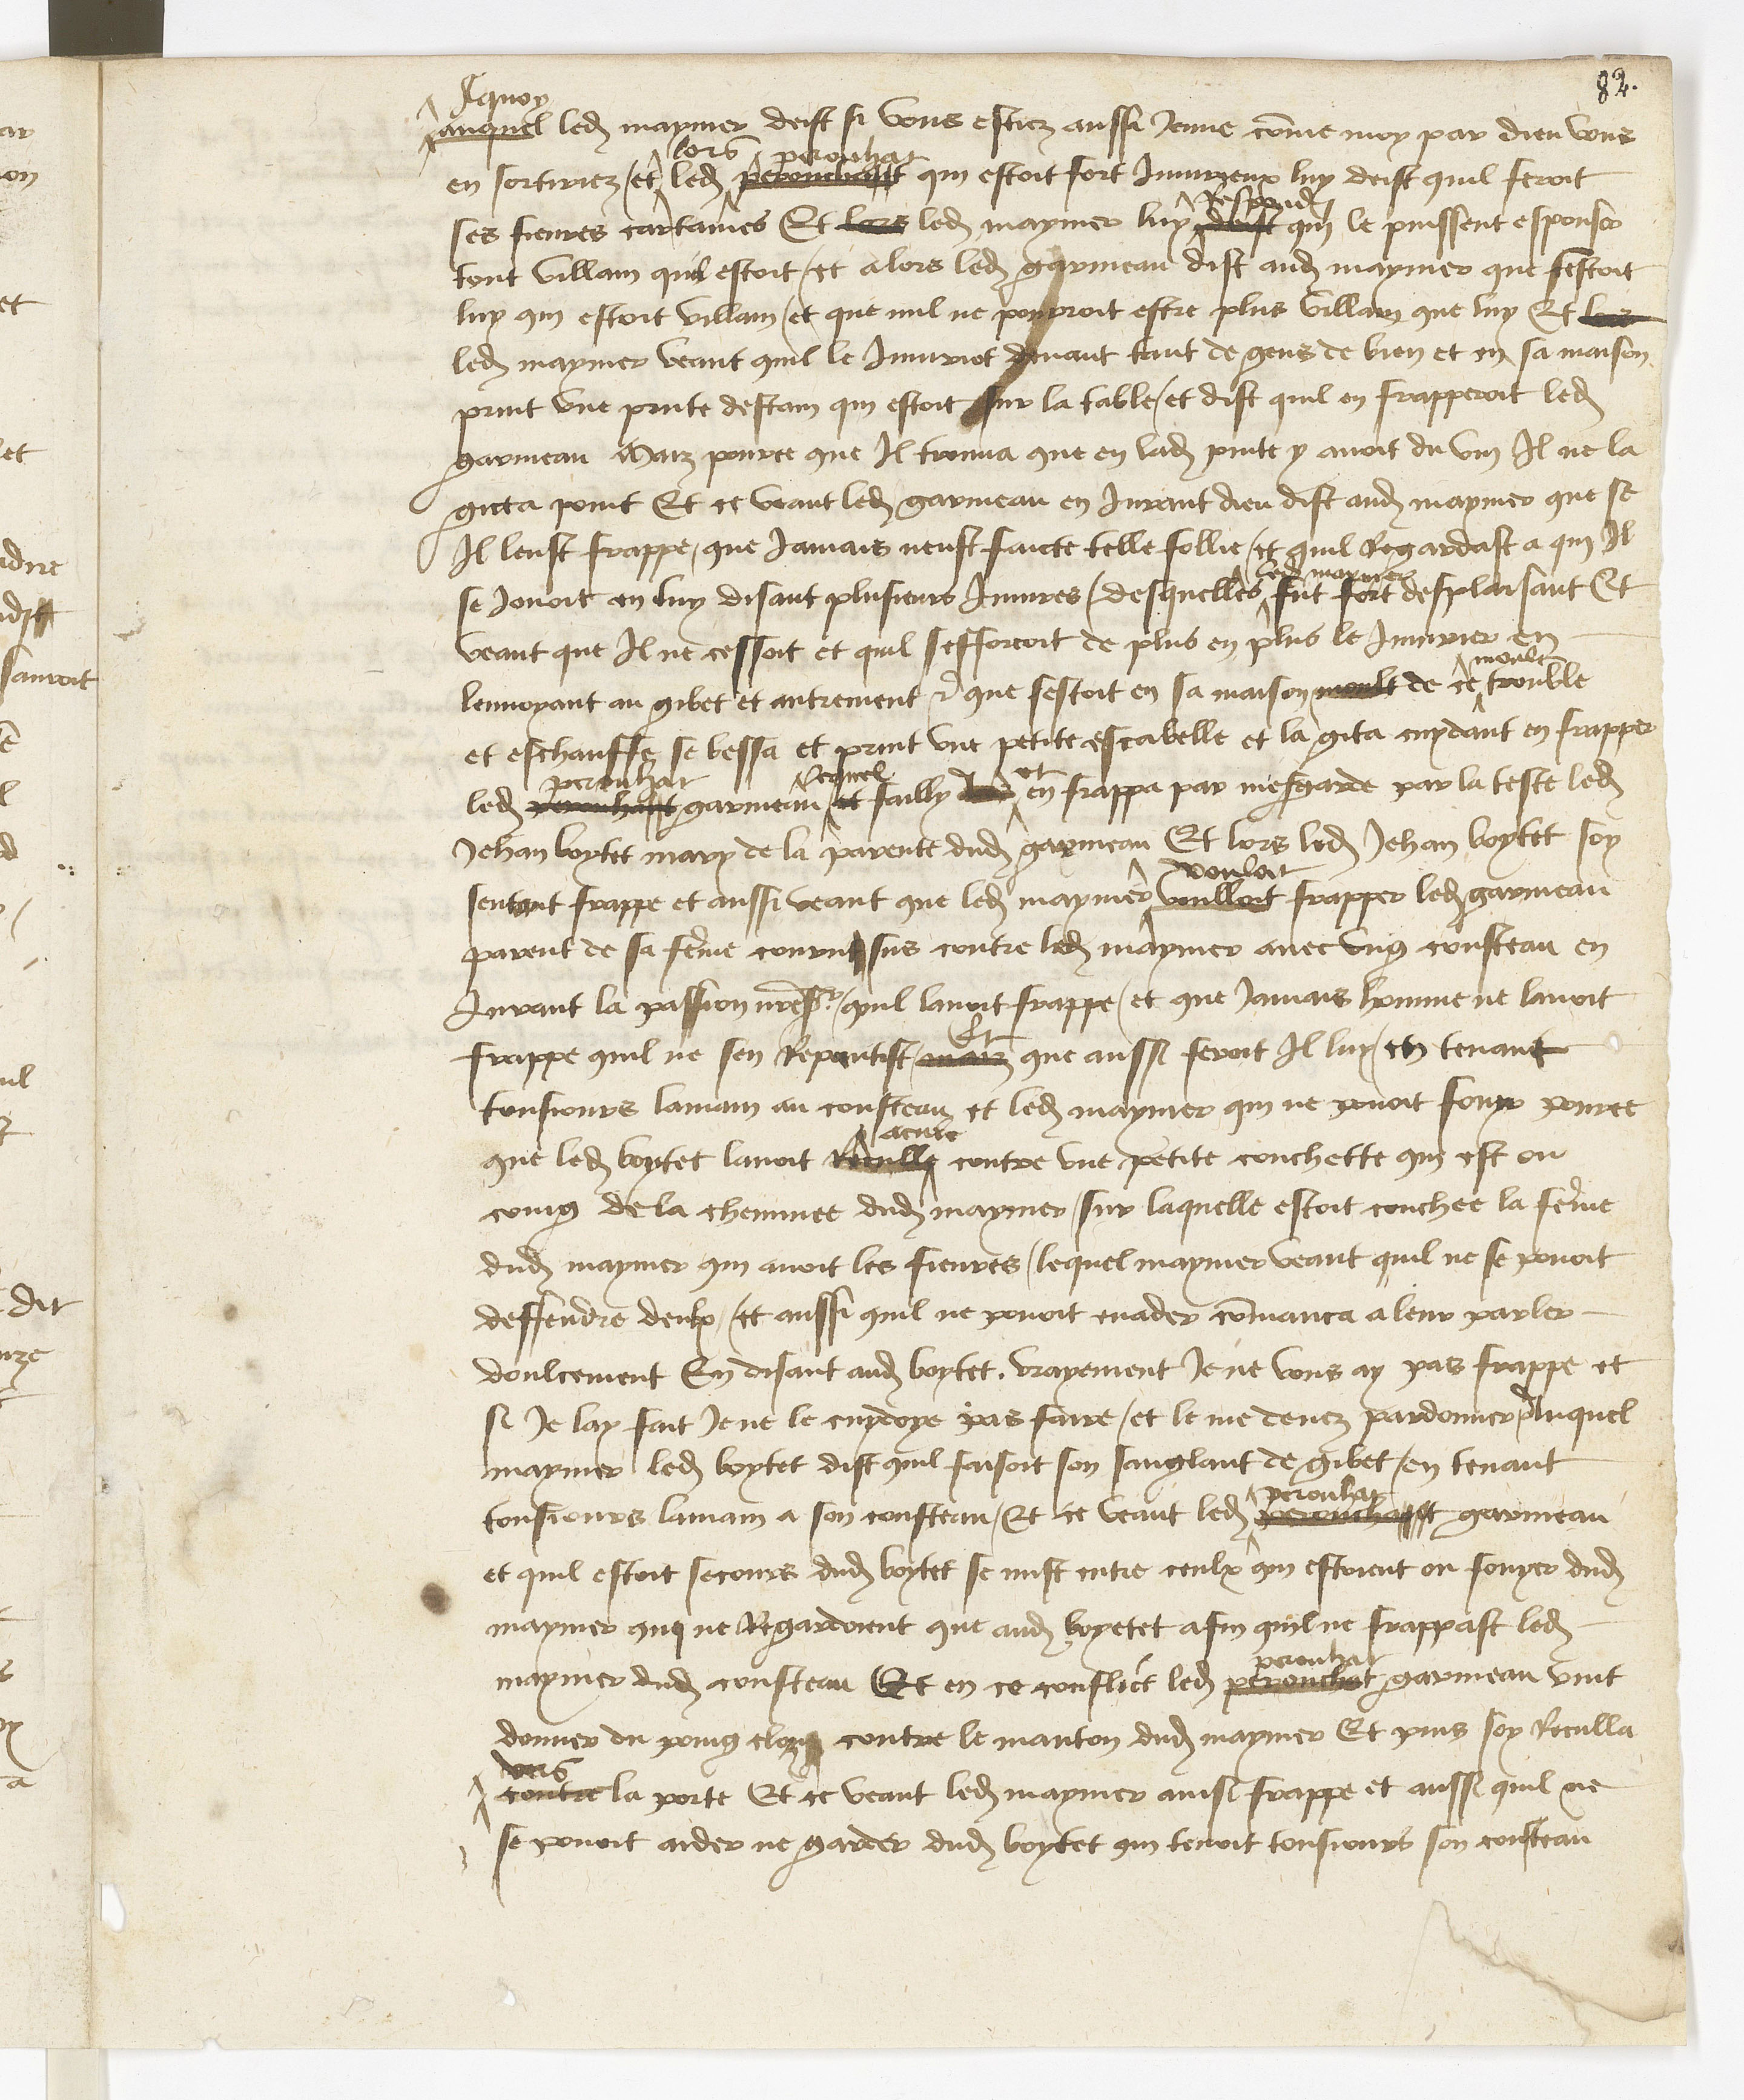 82.
A quoy
auquel led maymer deist si vous estiez aussi Jeune come moy par dieu vous
lors peronhar
en sortiriez / et led peronchafft qui estoit fort Iniurieux luy deist quil feroit
Respond
ses fieures cartaines Et lors led maymer luy deist quil le puissent espouser
tout villain quil estoit / et alors led garmeau dist aud maymer que sestoit
luy qui estoit villain / et que nul ne pourroit estre plus villain que luy Et lors
led maymer veant quil le Iniurioit deuant tant de gens de bien et en sa maison
print vne pinte destain qui estoit sur la table / et dist quil en frapperoit led
garmeau Maiz pource que Il trouua que en lad pinte y auoit du vin Il ne la
gicta point Et ce veant led garmeau en Jurant dieu dist aud maymer que se
Il leust frappe, que Jamais neust faicte telle follie / et quil Regardast a qui Il
led maymer
se Jouoit en luy disant plusieurs Iniures / desquelles fut fort desplaisant Et
veant que Il ne cessoit et quil sefforcoit de plus en plus le Iniurier en
moult
lenuoyant au gibet et autrement & que sestoit en sa maison moult de ce trouble
et eschauffe se bessa et print vne petite escabelle et la gita cuydant en frapper
peronhar lequel et
led peronhafft garmeau et failly en frappa par mesgarde par la teste led
Jehan boytet mary de la parente dud garmeau Et lors led Jehan boytet soy
vouloit
sentant frappe et aussi veant que led maymer voulloit frapper led garmeau
parent de sa feme courut sus contre led maymer auec vng cousteau en
Jurant la passion nre sr / quil lauoit frappe / et que Jamais homme ne lauoit
Et
frappe quil ne sen Repantist / maiz que aussi feroit Il luy / en tenant
tousiours lamain au cousteau et led maymer qui ne pouoit fouyr pource
acule
que led boytet lauoit Reculle contre vne petite couchette qui est ou
coing de la cheminee dud maymer / sur laquelle estoit couchee la feme
dud maymer qui auoit les fieures / lequel maymer veant quil ne se pouoit
deffendre deulx / et aussi quil ne pouoit euader comanca a leur parler
doulcement En disant aud boytet. vrayement Je ne vous ay pas frappe et
si Je lay fait Je ne le cuydoye pas faire / et le me deuez pardonner / Auquel
maymer led boytet dist quil faisoit son sanglant de gibet / en tenant
peronhar
tousiours lamain a son cousteau / Et ce veant led peronchafft garmeau
et quil estoit secours dud boytet se mist entre ceulx qui estoient ou fouyer dud
maymer qui ne Regardoient que aud boyetet afin quil ne frappast led
peronhar
maymer dud cousteau Et en ce conflict led peronchat garmeau vint
donner du poing cloz contre le manton dud maymer Et puis soy Reculla
vers
contre la porte Et ce veant led maymer ainsi frappe et aussi quil ne
se pouoit aider ne garder dud boytet qui tenoit tousiours son cousteau